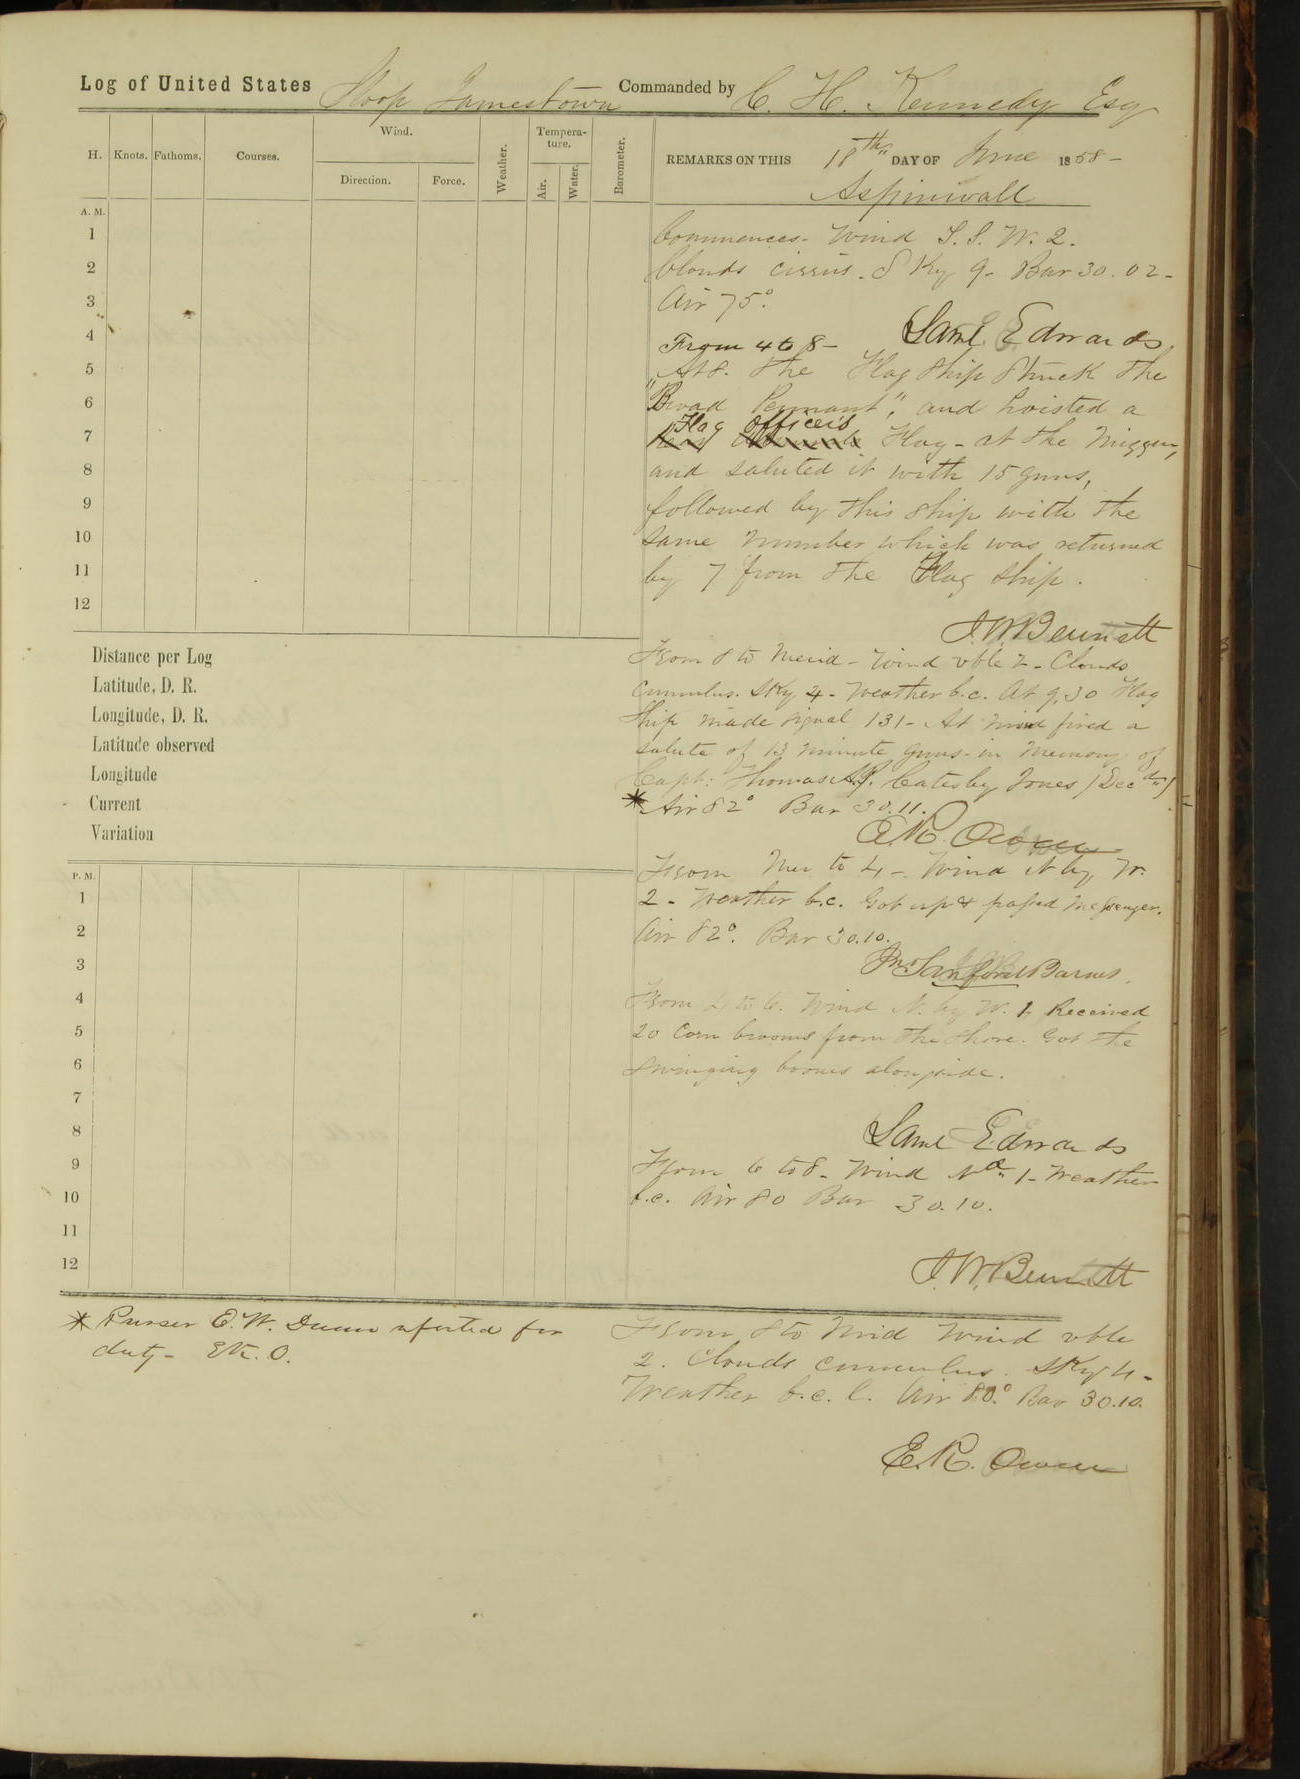 Log of United States Sloop Jamestown Commanded by C. H. Kennedy Esq
H. Knots. Fathoms. Courses. Wind. Direction. Force. Weather. Tempera-ture. Air. Water. Barometer.
REMARKS ON THIS 18th DAY OF June 1858-
Aspinwall
A. M.
1
2
3
4
5
6
7
8
9
10
11
12
Commences- Wind S. S. W. 2.
Clouds cirrus. Sky 9- Bar 30.02-
Air 75°.
Saml Edwards
From 4 to 8-
At 8. the Flag Ship Struck the
"Broad Pennant", and hoisted a
Flag Officer's Flag- at the Mizzen,
and saluted it with 15 guns,
followed by this Ship with the
same number which was returned
by 7 from the Flag Ship.
J. W. Bennett
From 8 to Merid- Wind vble 2- Clouds
Cumulus. Sky 4- Weather b.c. At 9.30 Flag
Ship made signal 131- At fired a
salute of 13 minute guns- in memory of
Capt: Thomas Ap. Catesby Jones (Decd)
* Air 82° Bar 30.11.
E. R. Owen
Distance per Log
Latitude, D. R.
Longitude, D. R.
Latitude observed
Longitude
Current
Variation
P. M.
1
2
3
4
5
6
7
8
9
10
11
12
From Mer to 4- Wind N by W.
2- Weather b.c. Got up & passed messenger.
Air 82°. Bar 30.10.
Jno Sanford Barnes.
From 4 to 6. Wind N. by W. 1. Received
20 Corn brooms from the shore. Got the
swinging booms alongside.
Saml Edwards
From 6 to 8- Wind Nd 1- Weather
b.c. Air 80 Bar 30.10.
J. W. Bennett
* Purser E. W. Dunn reported for
duty- E. R. O.
From 8 to Mid Wind vble
2. Clouds cumulus. Sky 4-
Weather b.c. l. Air 80.° Bar 30.10.
E. R. Owen